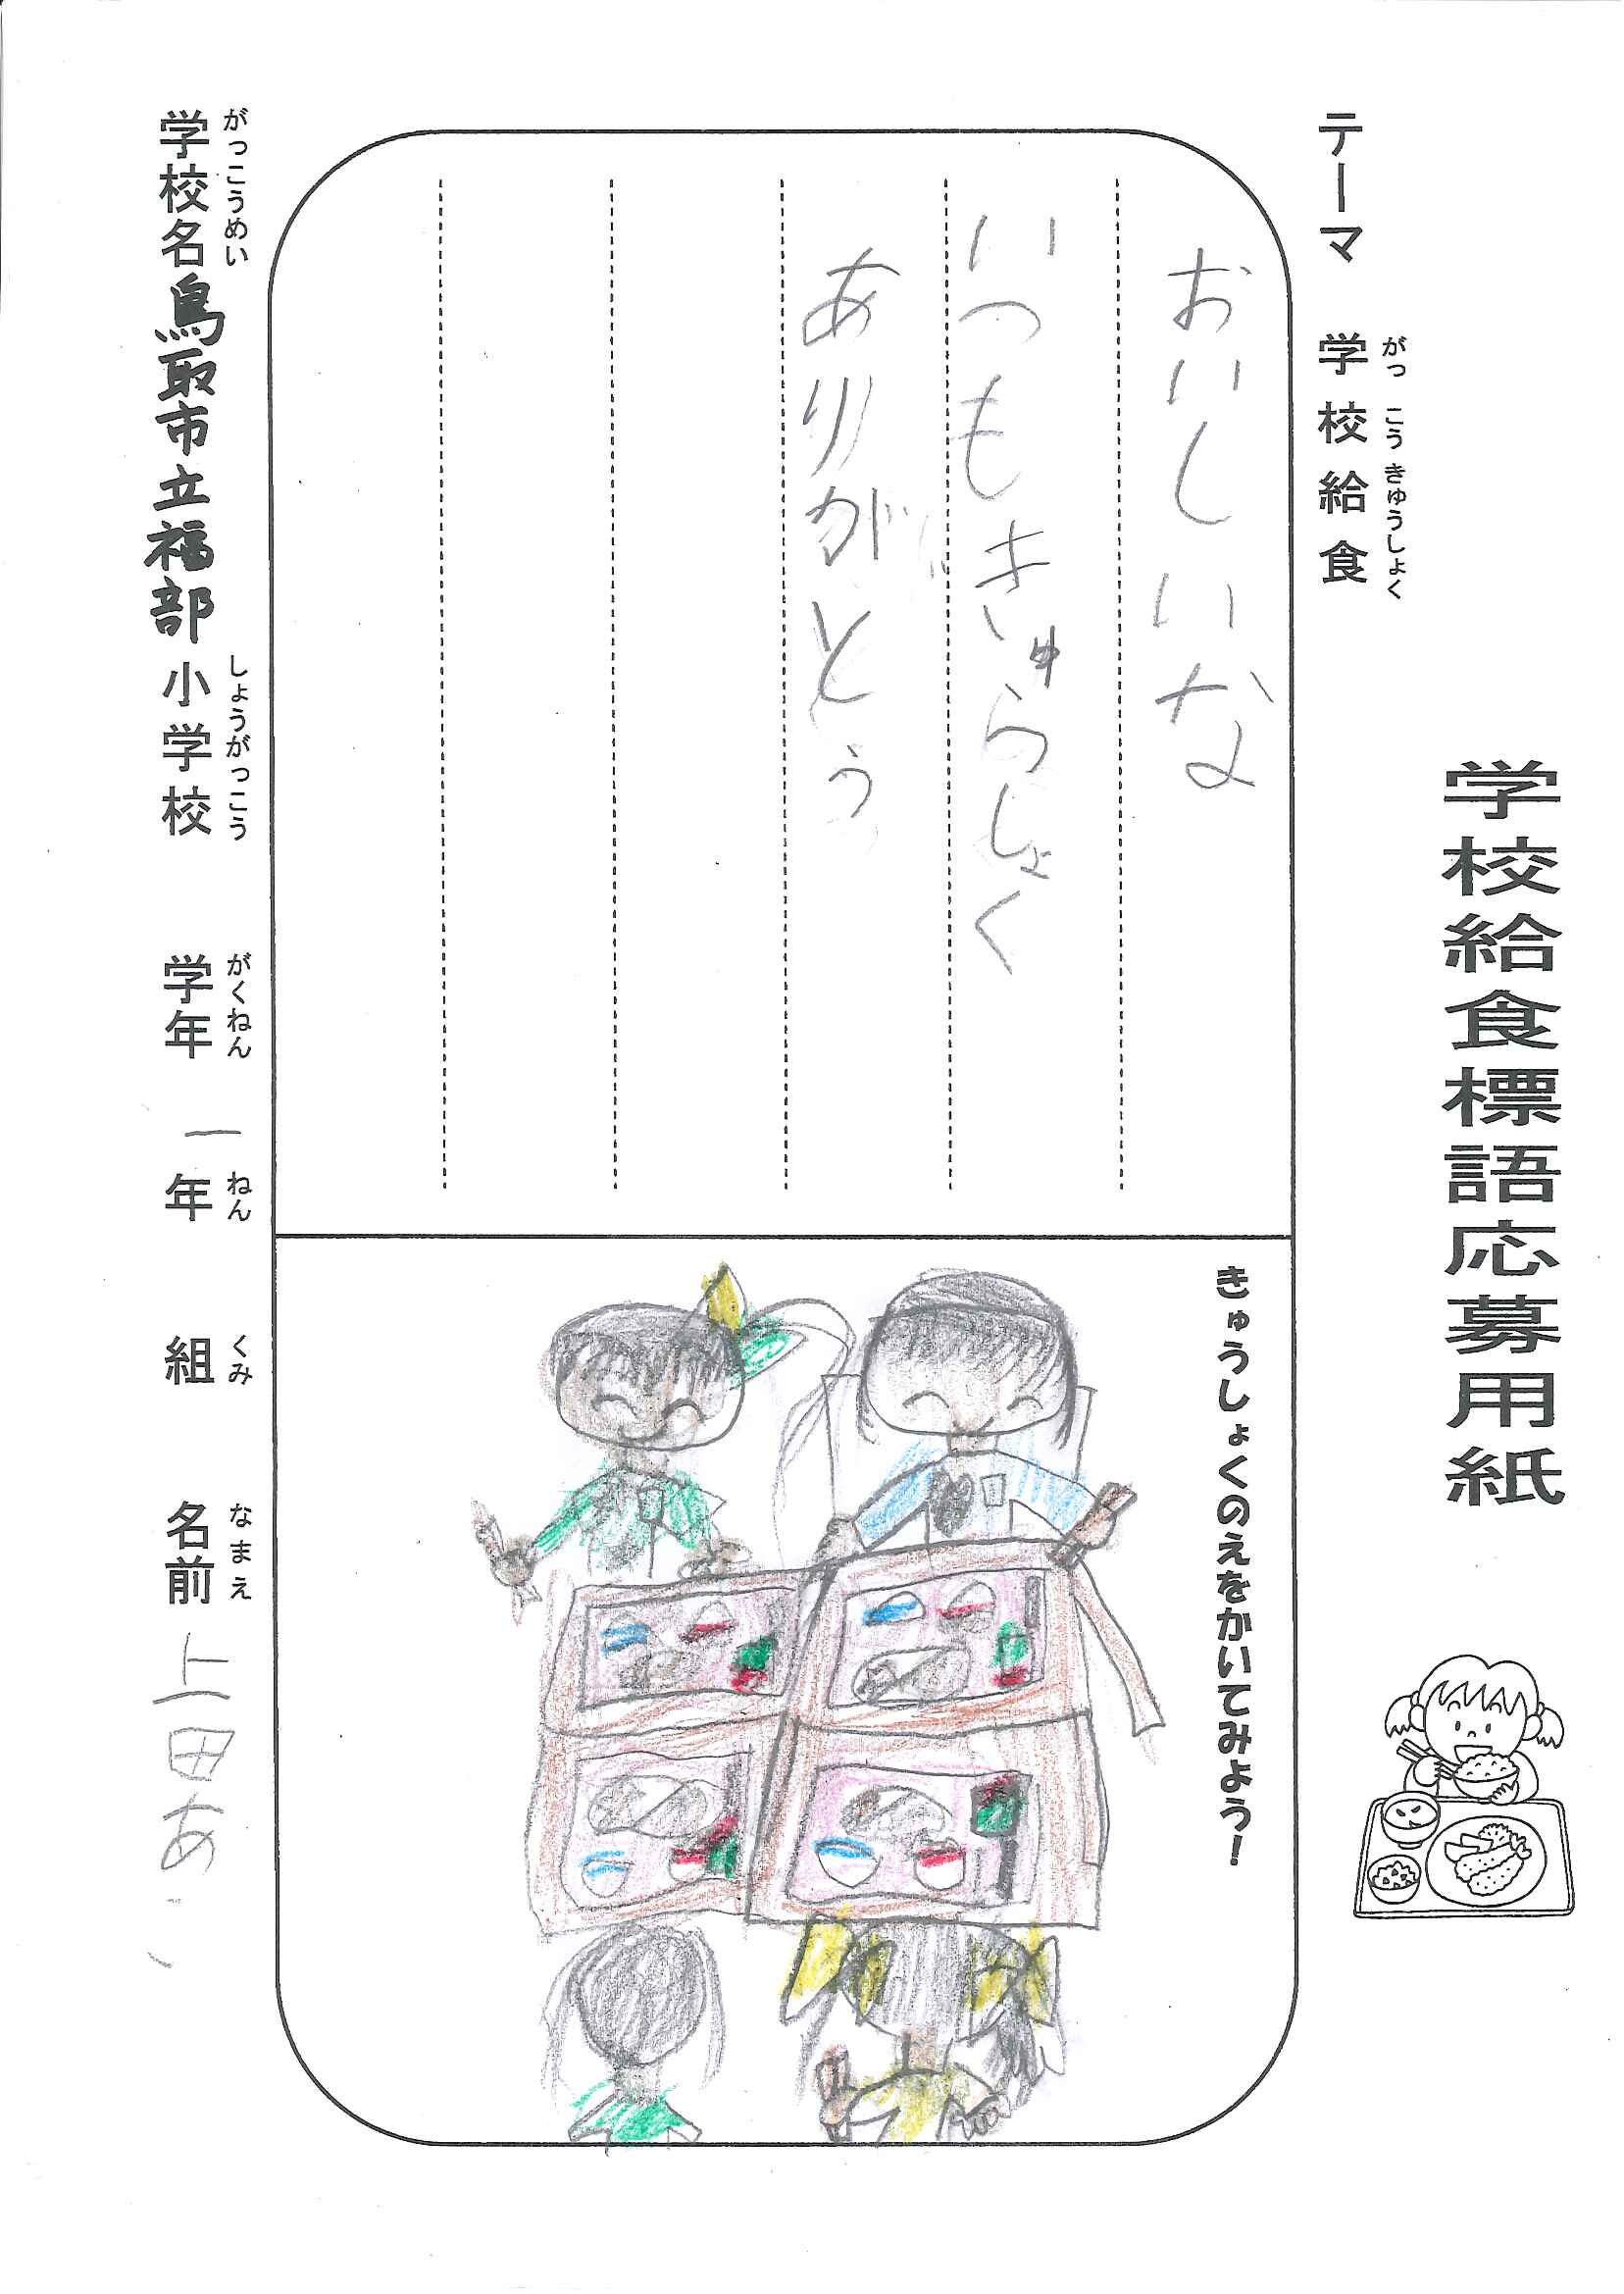 学校給食標語応募用紙
テーマ 学校給食
がっ こう きゅうしょく
おいしいな
いつもきゅうしょく
ありがとう
きゅうしょくのえをかいてみよう!
がっこうめい しょうがっこう がくねん ねん くみ なまえ
学校名 鳥取市立福部 小学校 学年 一 年 組 名前 上田あこ